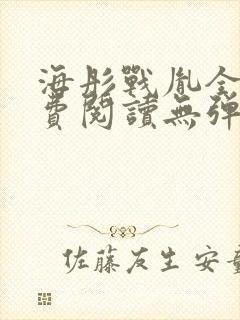 海彤戰胤全
費閱讀無彈
佐藤友生 安童